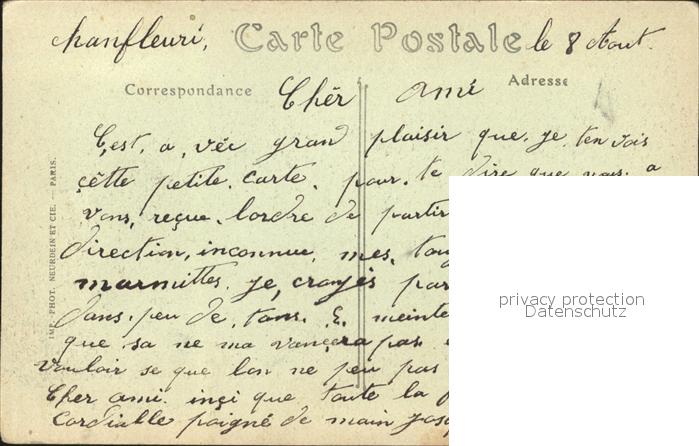 chanfleuri, Carte Postale le 8 Aout.
Correspondance Adresse
Chér amé
C,est, a, véc grand plaisir que, je, ten vois
çêtte petite, carte, pour, te dire que nous, a
vons, reçue, lordre de partir
direction, inconnue, mes, touj
marmittes. je, croyés par
dans, peu de, tans. & meinte
que, sa ne ma vancera pas
vouloir se que lon ne peu pas
Cher ami. inçi que toute la
Cordialle poigné de main jusq
IMP.-PHOT. NEURDEIN ET CIE. — PARIS.
privacy protection
Datenschutz